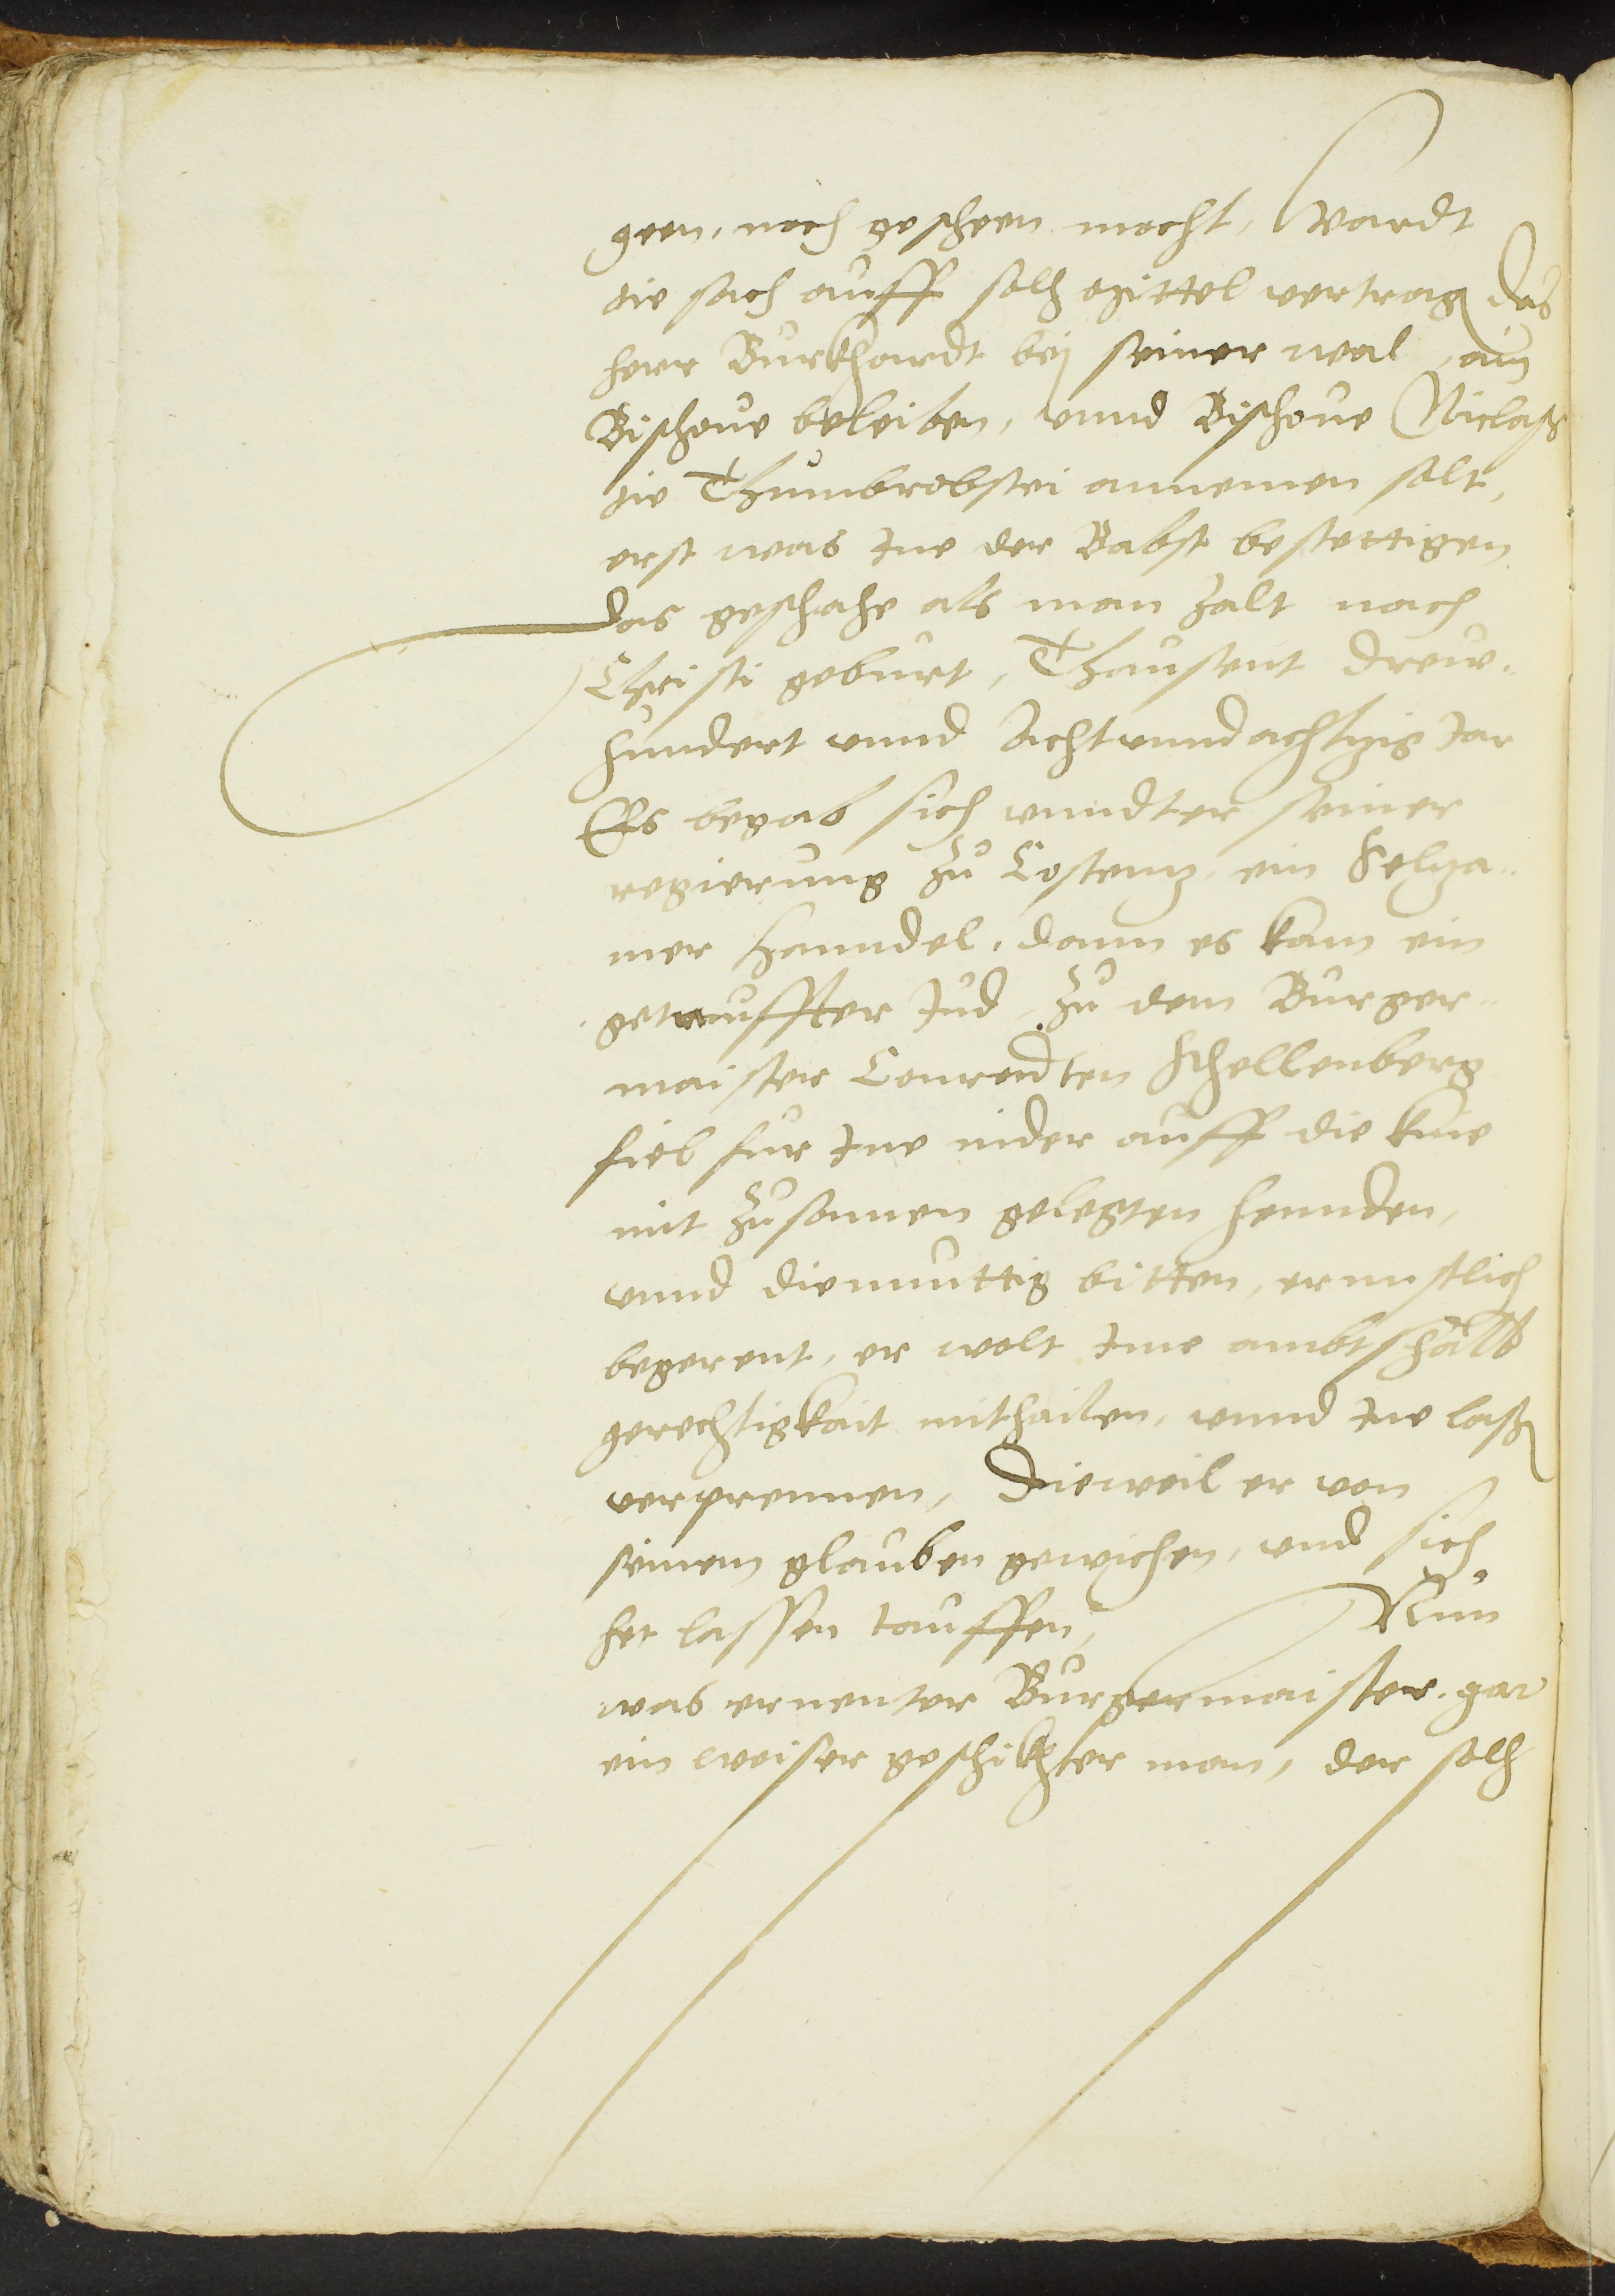 geen, noch gescheen mocht, Wardt
die sach auff solh mittel vertrag das
herr Burkhardt bej seiner wal, ain
Bischoue beleiben, vnnd Bischoue Niclaß
die Thumbrobstei annemen solt,
erst was Ine der Babst bestettigen,
das geschahe als man zalt nach
Christi geburt, Thausent drew-
hundert vnnd Achtvnndachtzig Jar
Es begab sich vnndter seiner
regierung zu Costentz, ein selza-
mer hanndel, dann es kam ein
getauffter Jud, zu dem Burger-
maister Conradten Schellenberg
fiel fur Ine nider auff die knie
mit zusamen gelegten hennden,
vnnd diemuttig bitten, ernnstlich
begerent, er wolt Ime ambtshalb
gerechtigkait mithailen, vnnd Ine laß
verprennen, Dieweil er von
seinem glauben gewichen, vnd sich
het lassen tauffen, Nun
was ernenter Burgermaister, gar
ein weiser geschikhter man, der solh